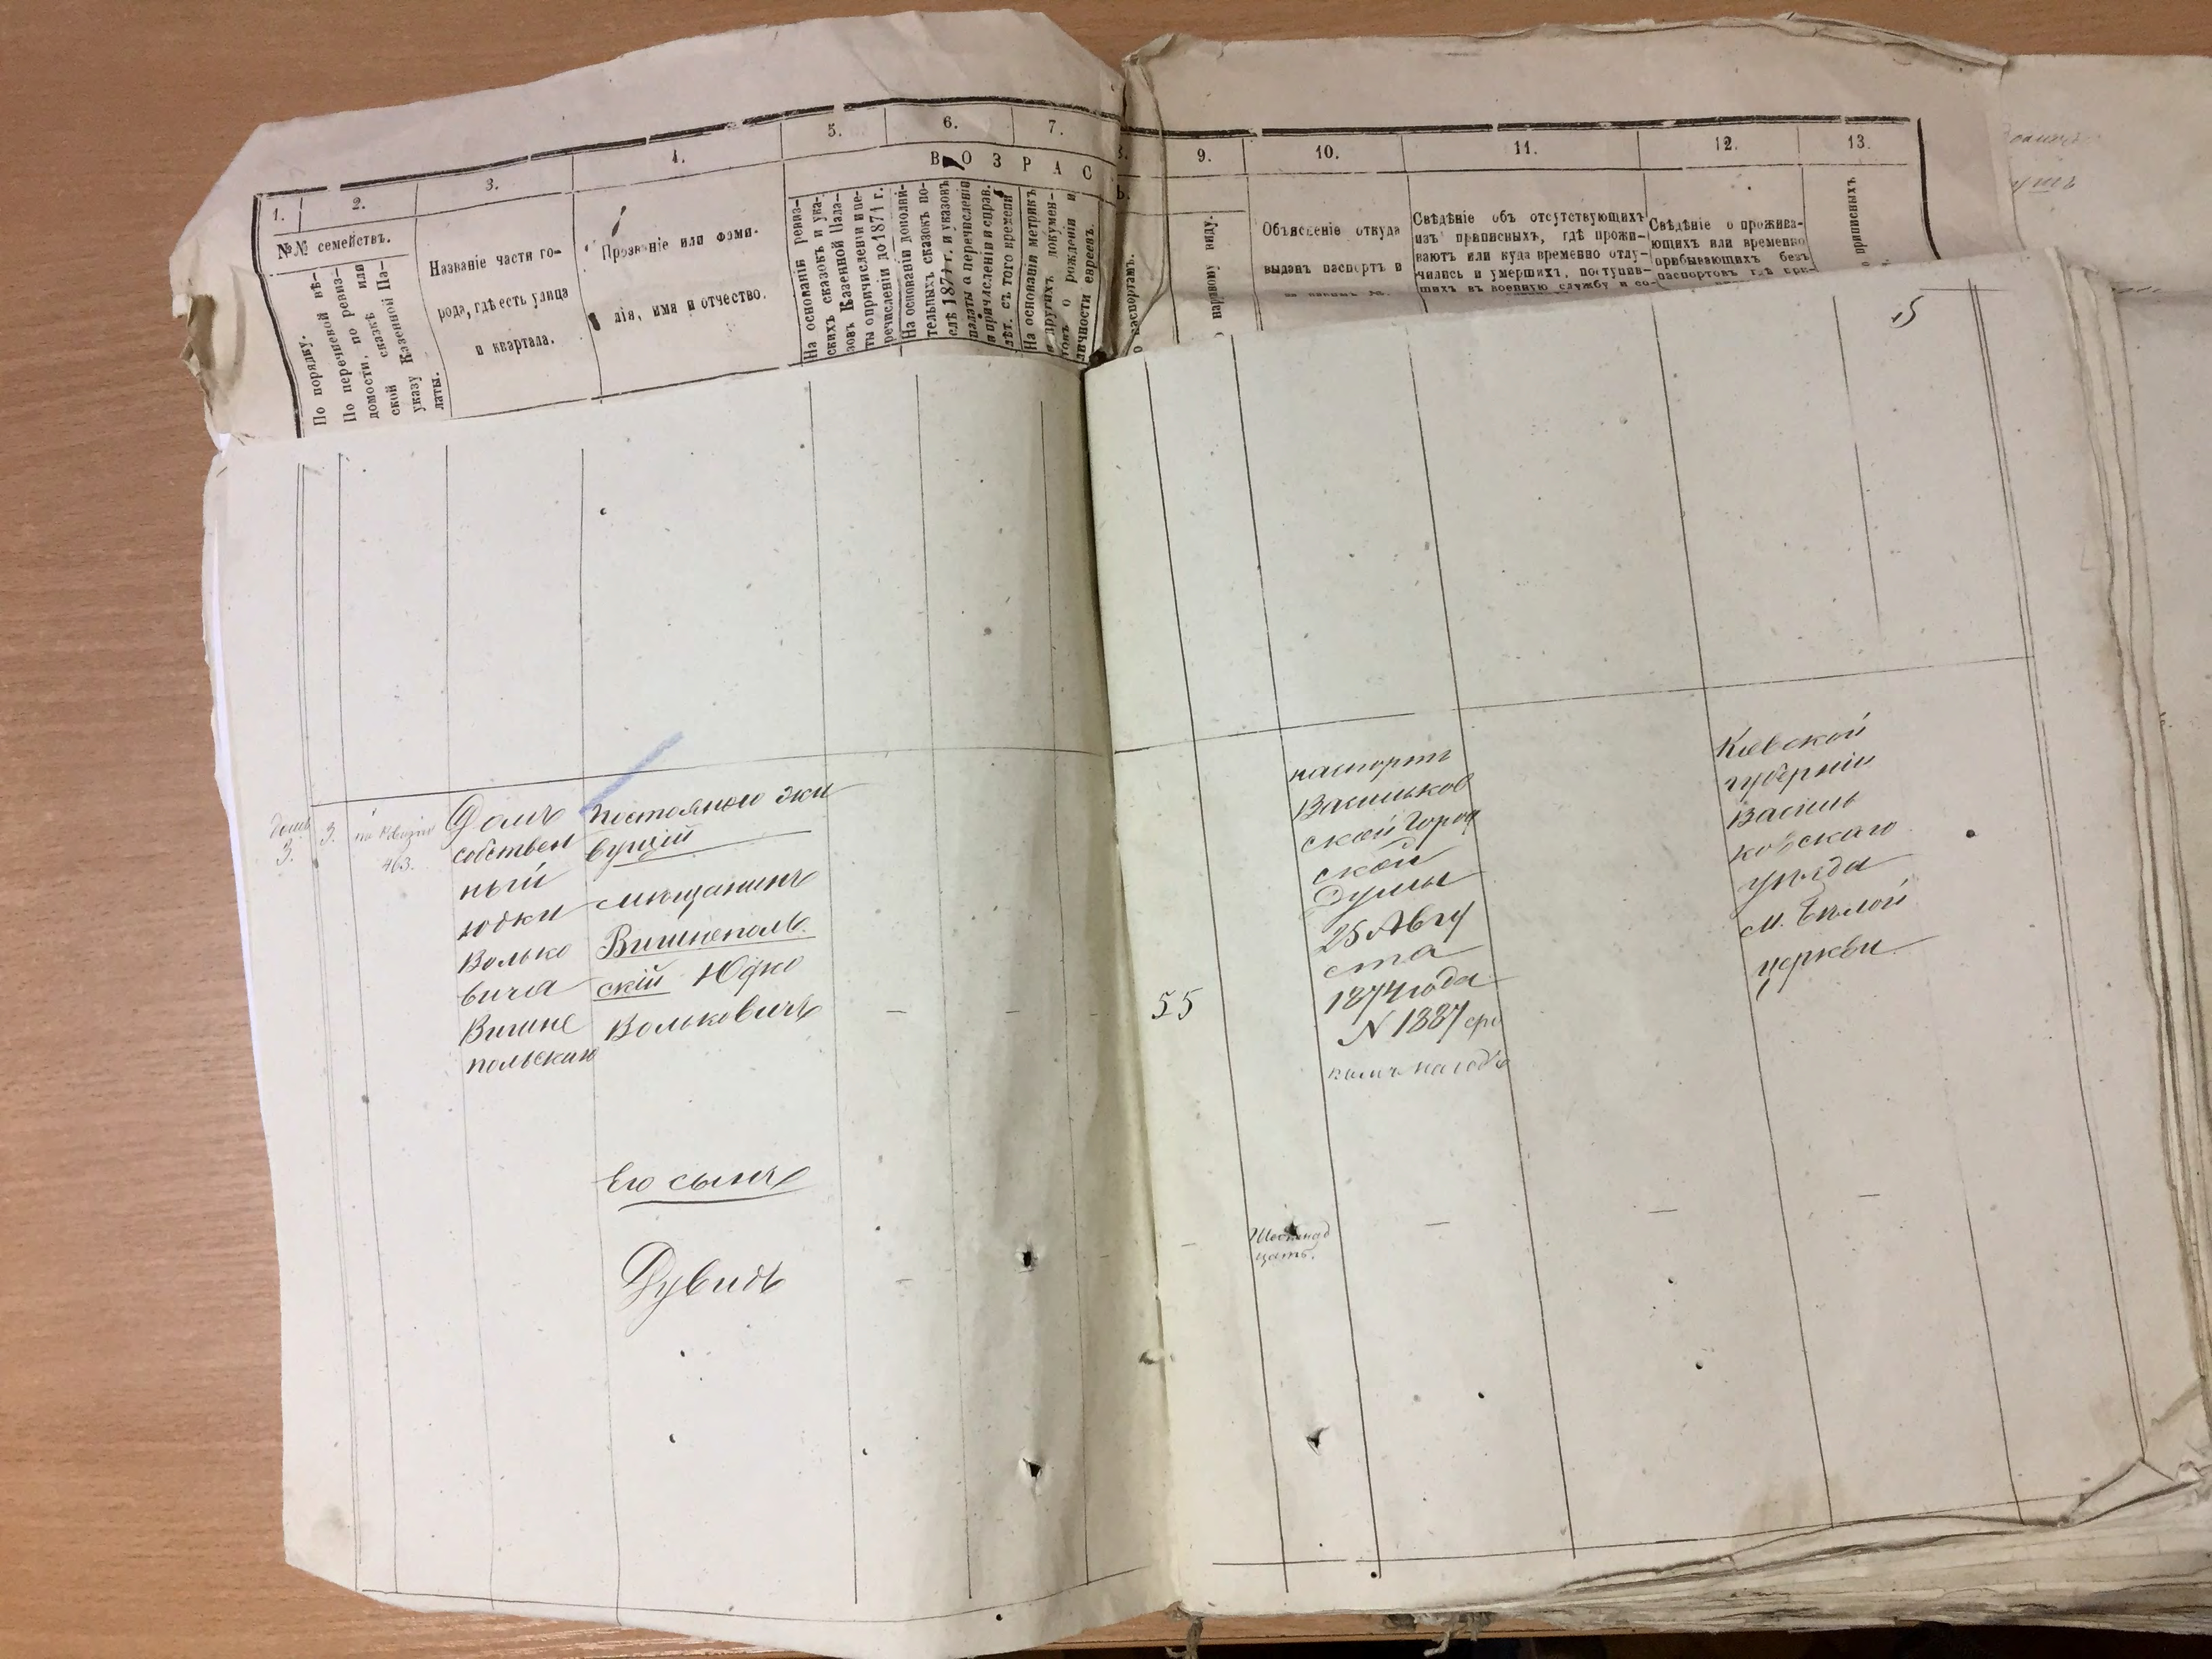 1.
2.
3.
4.
5.
6.
7.
ВОЗРАС
№№ семействъ.
По порядку.
По перечневой вѣ-
домости, по ревиз-
ской сказкѣ или
указу Казенной Па-
латы.
Названіе части го-
рода, гдѣ есть улица
и квартала.
Прозваніе или фами-
лія, имя и отчество.
На основаніи ревиз-
скихъ сказокъ и ука-
зовъ Казенной Пала-
ты о причисленіи и пе-
речисленіи до 1871 г.
На основаніи дополни-
тельныхъ сказокъ по-
слѣ 1871 г. и указовъ
палаты а перечисленіи
и причисленіи и справ.
лѣт. съ того времени
На основаніи метрикъ
и другихъ докумен-
товъ о рожденіи и
личности евреевъ.
8.
9.
10.
11.
12.
13.
паспортамъ.
наравому виду.
Объясненіе откуда
выданъ паспортъ и
Свѣдѣніе объ отсутствующихъ
изъ приписныхъ, гдѣ прожи-
ваютъ или куда временно отлу-
чились и умершихъ, поступив-
шихъ въ военную службу и со-
Свѣдѣніе о прожива-
ющихъ или временно
прибывающихъ безъ
паспортовъ гдѣ при-
приписныхъ
5
домъ
3.
3.
по Ревизіи
463.
Домъ
собствен
ный
Юдки
Волько
вича
Вишне
польскаго
Постоянно жи
вущій
мѣщанинъ
Вишнеполь
скій Юдко
Вольковичъ
Его сынъ
Дувидъ
55
паспортъ
Васильков
ской Город
ской
Думы
25 Авгу
ста
1874 года
N 1887 сро
комъ на годъ
Шестнад
цать.
Кіевской
губерніи
Василь
ковскаго
уѣзда
м. Бѣлой
церкви